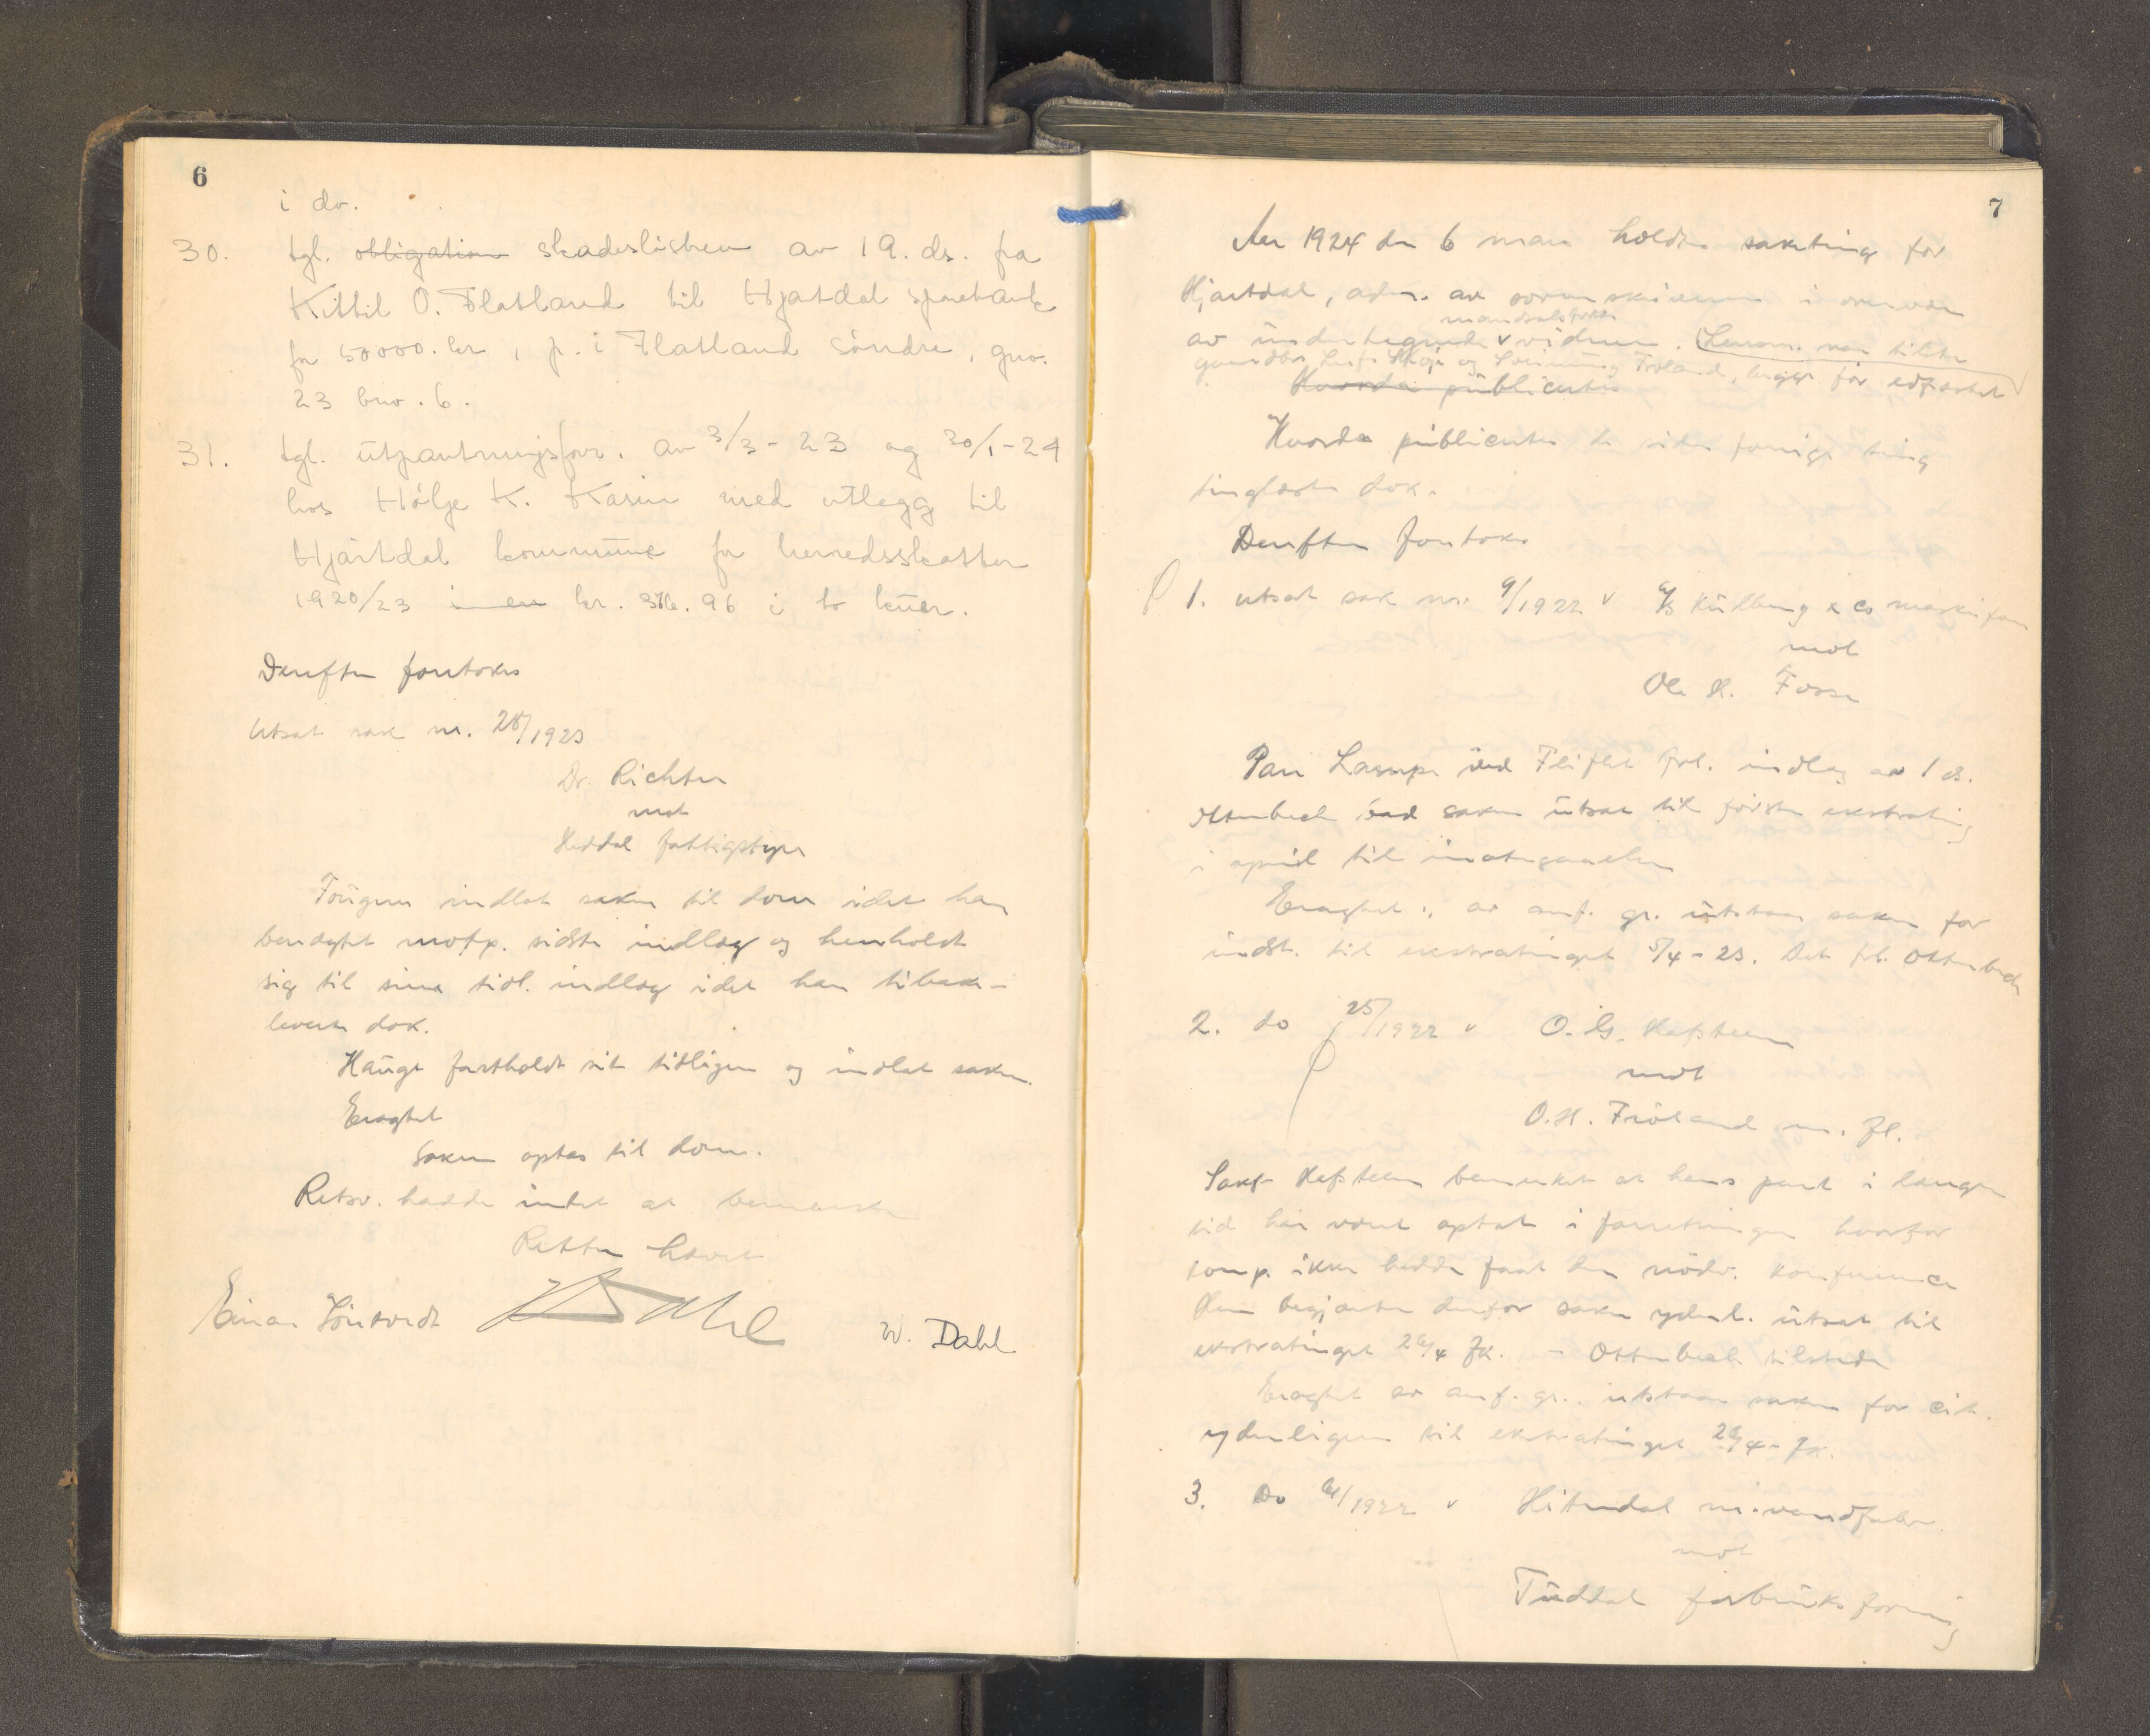 6
i do.
30. tgl. obligation skadesløsbrev av 19. ds. fra
Kittil O. Flatland til Hjartdal sparebank
for 50000. kr, p. i Flatland søndre, gno.
23 bno. 6.
31. tgl. utpantningsforr. av 3/3-23 og 30/1-24
hos Hølje K. Kasin med utlegg til
Hjartdal kommune for herredsskatter
1920/23 kr. 96 i to kuer.
Derefter foretokes
Utsat sak nr. 28/1923
Dr. Richter
mot
Heddal fattigstyre
Fougner indlot saken til dom idet han
benegtet motp. sidste indlæg og henholdt
sig til sine tidl. indlæg idet han tilbake-
leverte dok.
Hauge fastholdt sit tidligere og indlot saken.
Eragtet
Saken optas til dom.
Retsv. hadde intet at bemerke
Retten hævet
W. Dahl
7
Aar 1924 den 6 mars holdtes saketing for
Hjartdal, adm. av sorenskriveren i overvær
av undertegnede mandtalsførte vidner. Lensm. var tilstede
Hvorda publicertes
Hvorda publicertes de siden forrige ting
tinglæste dok.
Derefter foretokes
1. utsat sak nr. 9/1922 v A/S Kulberg & Co
mot
Ole H. Fosse
i april til imøtegaaelse
Eragtet: av anf. gr. utstaar saken for
indst. til ekstratinget 5/4-23. Det frl. Otterbech
2. do 25/1922 v O. G. Hefsteen
mot
O. H. Frøland m. fl.
Sakf. Hefsteen bemerket at hans part i længere
tid har været optat i forretninger hvorfor
komp. ikke hadde faat den nødv. konference
Han begjærte derfor saken yderl. utsat til
ekstratinget 26/4 fk. - Otterbech tilstede
Eragtet av anf. gr. utstaar saken for cit.
yderligere til ekstratinget 26/4-fk.
3. Do /1922 v Hitterdal
mot
Tuddal forbruksforening